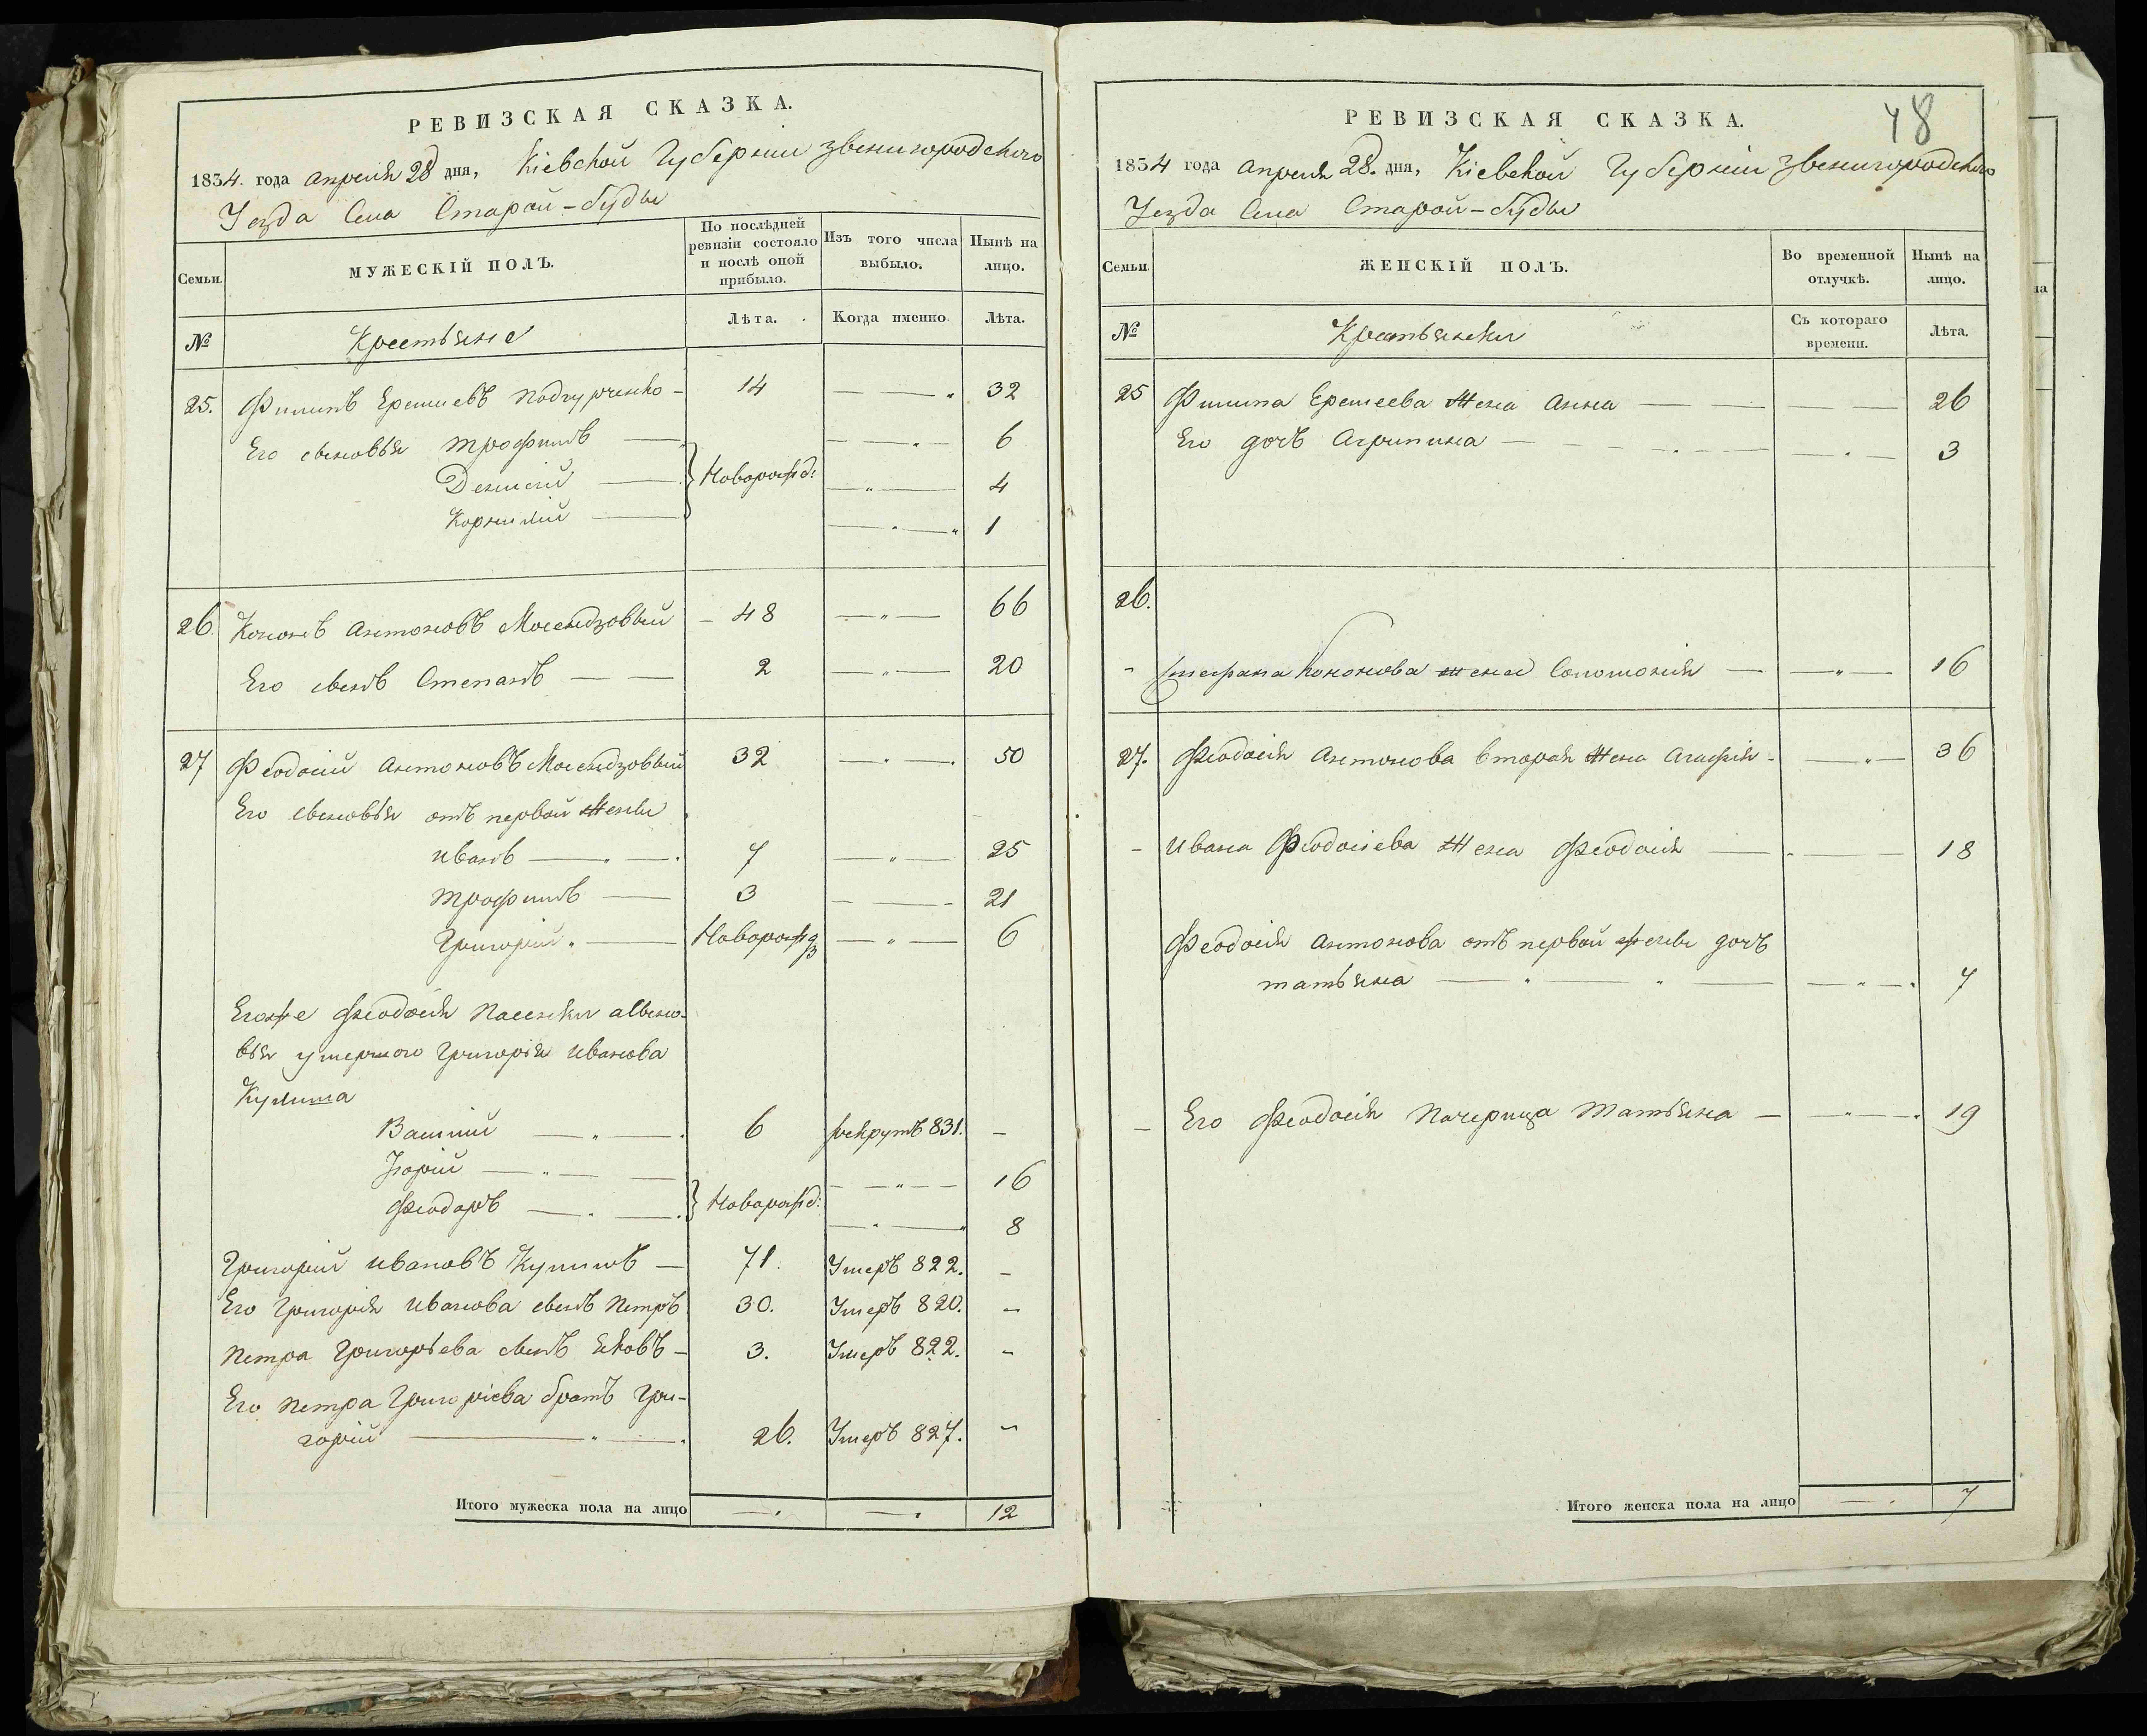 РЕВИЗСКАЯ СКАЗКА.
1834. года апреля 28 дня, Кіевской Губерніи Звенигородского
Уезда Села Старой-буды
Семьи.
МУЖЕСКІЙ ПОЛЪ.
По послѣдней ревизіи состояло и послѣ оной прибыло.
Изъ того числа выбыло.
Нынѣ на лицо.
№
Крестьяне
Лѣта.
Когда именно.
Лѣта.
25. Филипъ Еремиевъ 14 32
Его сыновья Трофимъ 6
Денисій } Новорожд: 4
Корнилій 1
26. Кононъ Антоновъ 48 66
Его сынъ Степанъ 2 20
27 Феодосій Антоновъ 32 50
Его сыновья отъ первой жены
Иванъ 7 25
Трофимъ 3 21
Григорій Новорожд 6
Егоже Феодосія Пасенки асыно-
вья умершого Григорія Иванова
Кулиша
Василій 6 рекрутъ 831. -
Юрій 16
Феодоръ } Новорожд: 8
Григорій Ивановъ Кулишъ 71. Умеръ 822. -
Его Григорія Иванова сынъ Петръ 30. Умеръ 820. -
Петра Григорьева сынъ Яковъ 3. Умеръ 822. -
Его Петра Григоріева братъ Гри-
горій 26. Умеръ 827. -
Итого мужеска пола на лицо 12
48
РЕВИЗСКАЯ СКАЗКА.
1834 года апреля 28. дня, Кіевской Губерніи Звенигородского
Уезда Села Старой-буды
Семьи.
ЖЕНСКІЙ ПОЛЪ.
Во временной отлучкѣ.
Нынѣ на лицо.
№
Крестьянки
Съ котораго времени.
Лѣта.
25 Филипа Еремеева жена Анна 26
Его дочъ Агрипина 3
26.
Степана Кононова жена Соломонія 16
27. Феодосія Антонова вторая жена Агафія 36
Ивана Феодосіева жена Феодосія 18
Феодосія Антонова отъ первой жены дочъ
татьяна 7
Его Феодосія Пачерица Татьяна 19
Итого женска пола на лицо 7
на